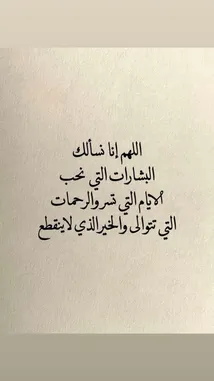 اللهم إنا نسألك
البشارات التي نحب
الايام التي تسر والرحمات
التي تتوالى والخير الذي لاينقطع